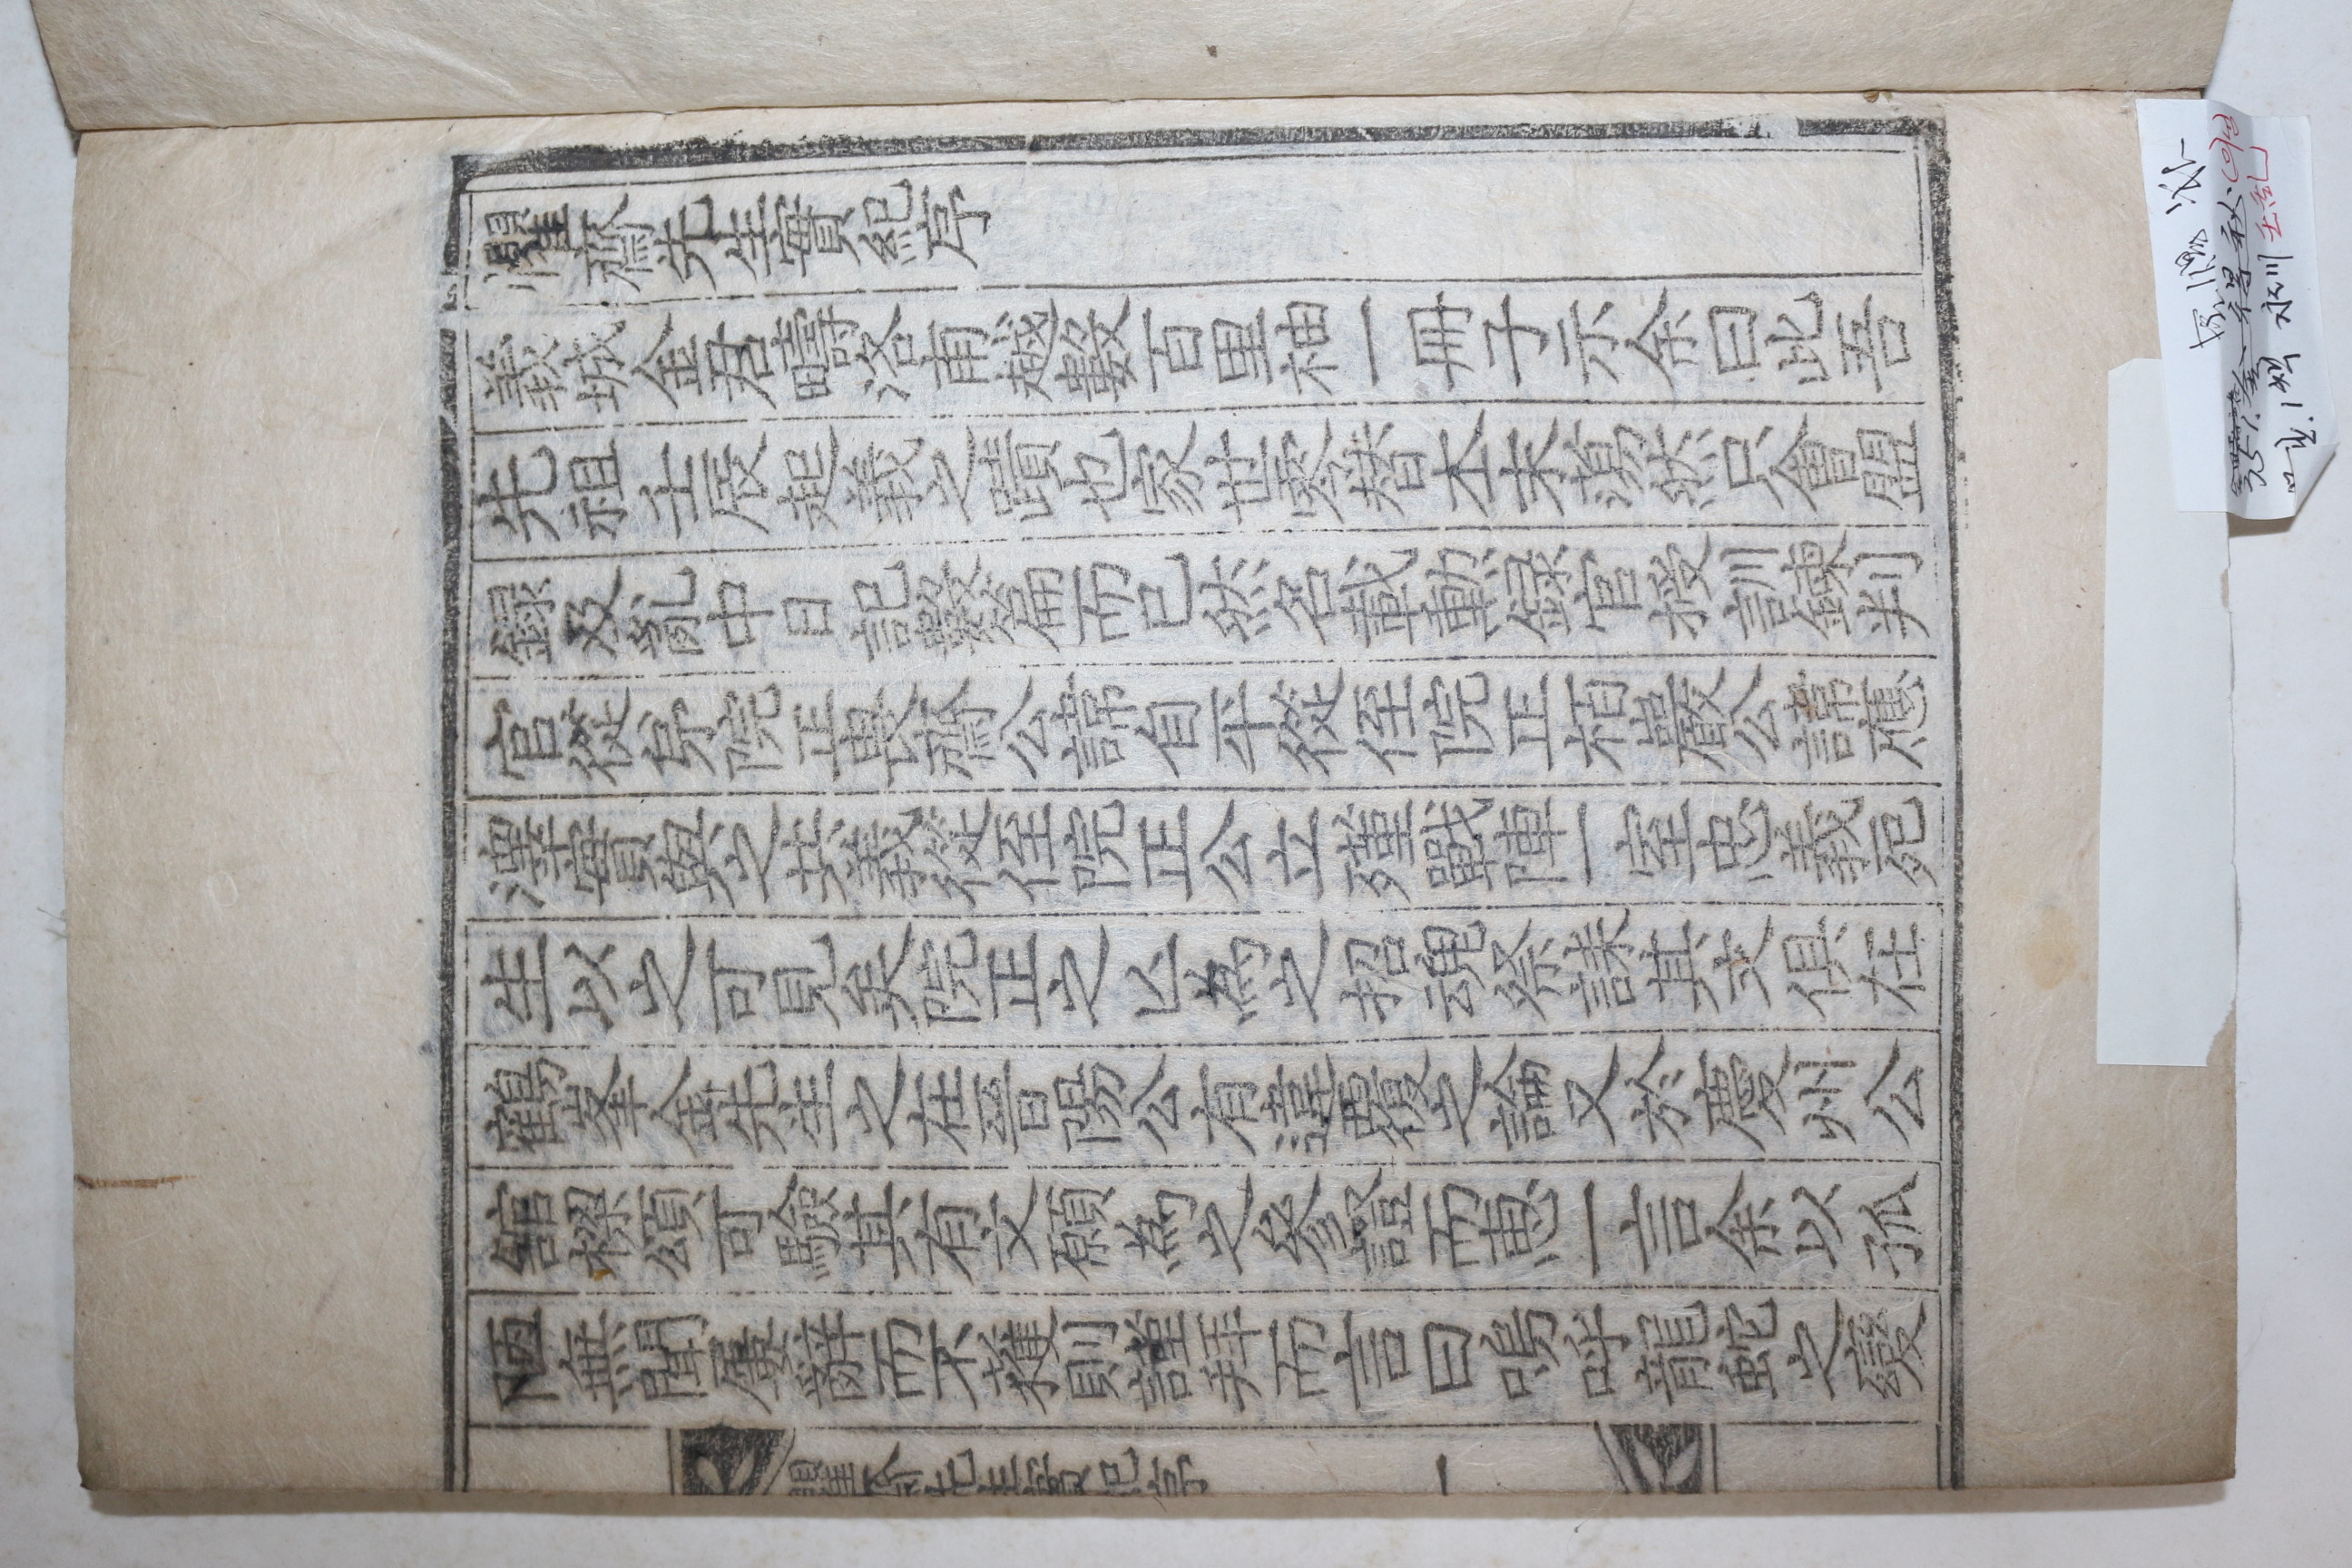 懼齋先生實紀序
義城金君疇洛甫越數百里袖一冊子示余曰此吾
先祖壬辰起義之蹟也家世零替本末蕩然只會盟
録及亂中日記數篇而已然名載勳録官授訓鍊判
官從弟院正畏齋公諱自平從侄院正栢巖公諱應
澤實與之共義從侄院正公立殣戰陣一室忠義死
生以之可見矣院正之亡為之招魂祭誄其文俱在
鶴峯金先生之在晉陽公有違覆之論又於慶州公
舘樑頌可驗其有文願為之參證而惠一言余以孤
陋無聞屢辭而不獲則謹拜而言曰嗚呼龍蛇之變
一